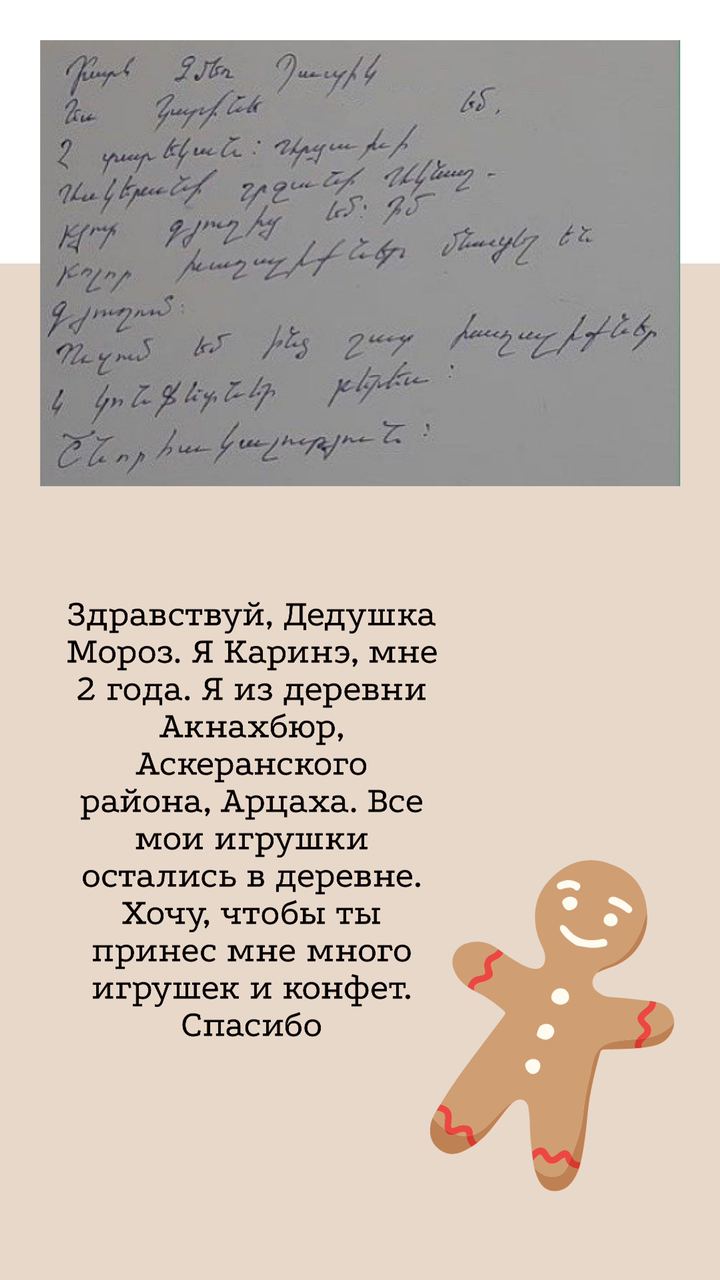 Բարև Ձմեռ Պապիկ
Ես Կարինեն եմ,
2 տարեկան: Արցախի
Ասկերանի շրջանի Ակնաղ-
բյուր գյուղից եմ: Իմ
բոլոր խաղալիքները մնացել են
գյուղում:
Ուզում եմ ինձ շատ խաղալիքներ
և կոնֆետներ բերես:
Շնորհակալություն:
Здравствуй, Дедушка
Мороз. Я Каринэ, мне
2 года. Я из деревни
Акнахбюр,
Аскеранского
района, Арцаха. Все
мои игрушки
остались в деревне.
Хочу, чтобы ты
принес мне много
игрушек и конфет.
Спасибо